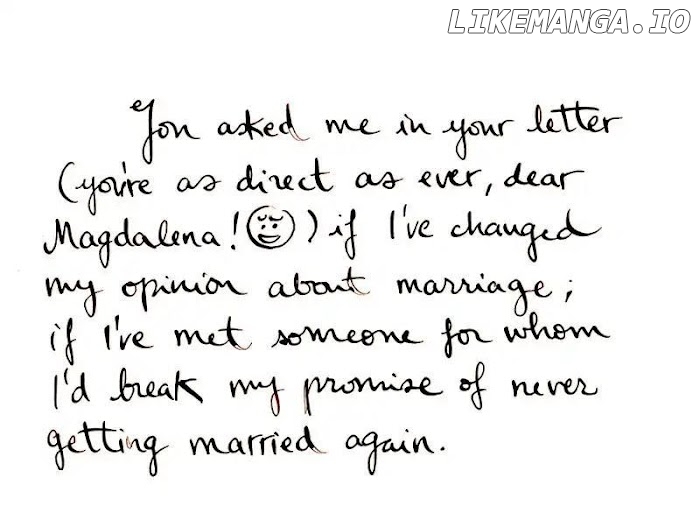 LIKEMANGA.IO
You asked me in your letter
(you're as direct as ever, dear
Magdalena! ) if I've changed
my opinion about marriage;
if I've met someone for whom
I'd break my promise of never
getting married again.